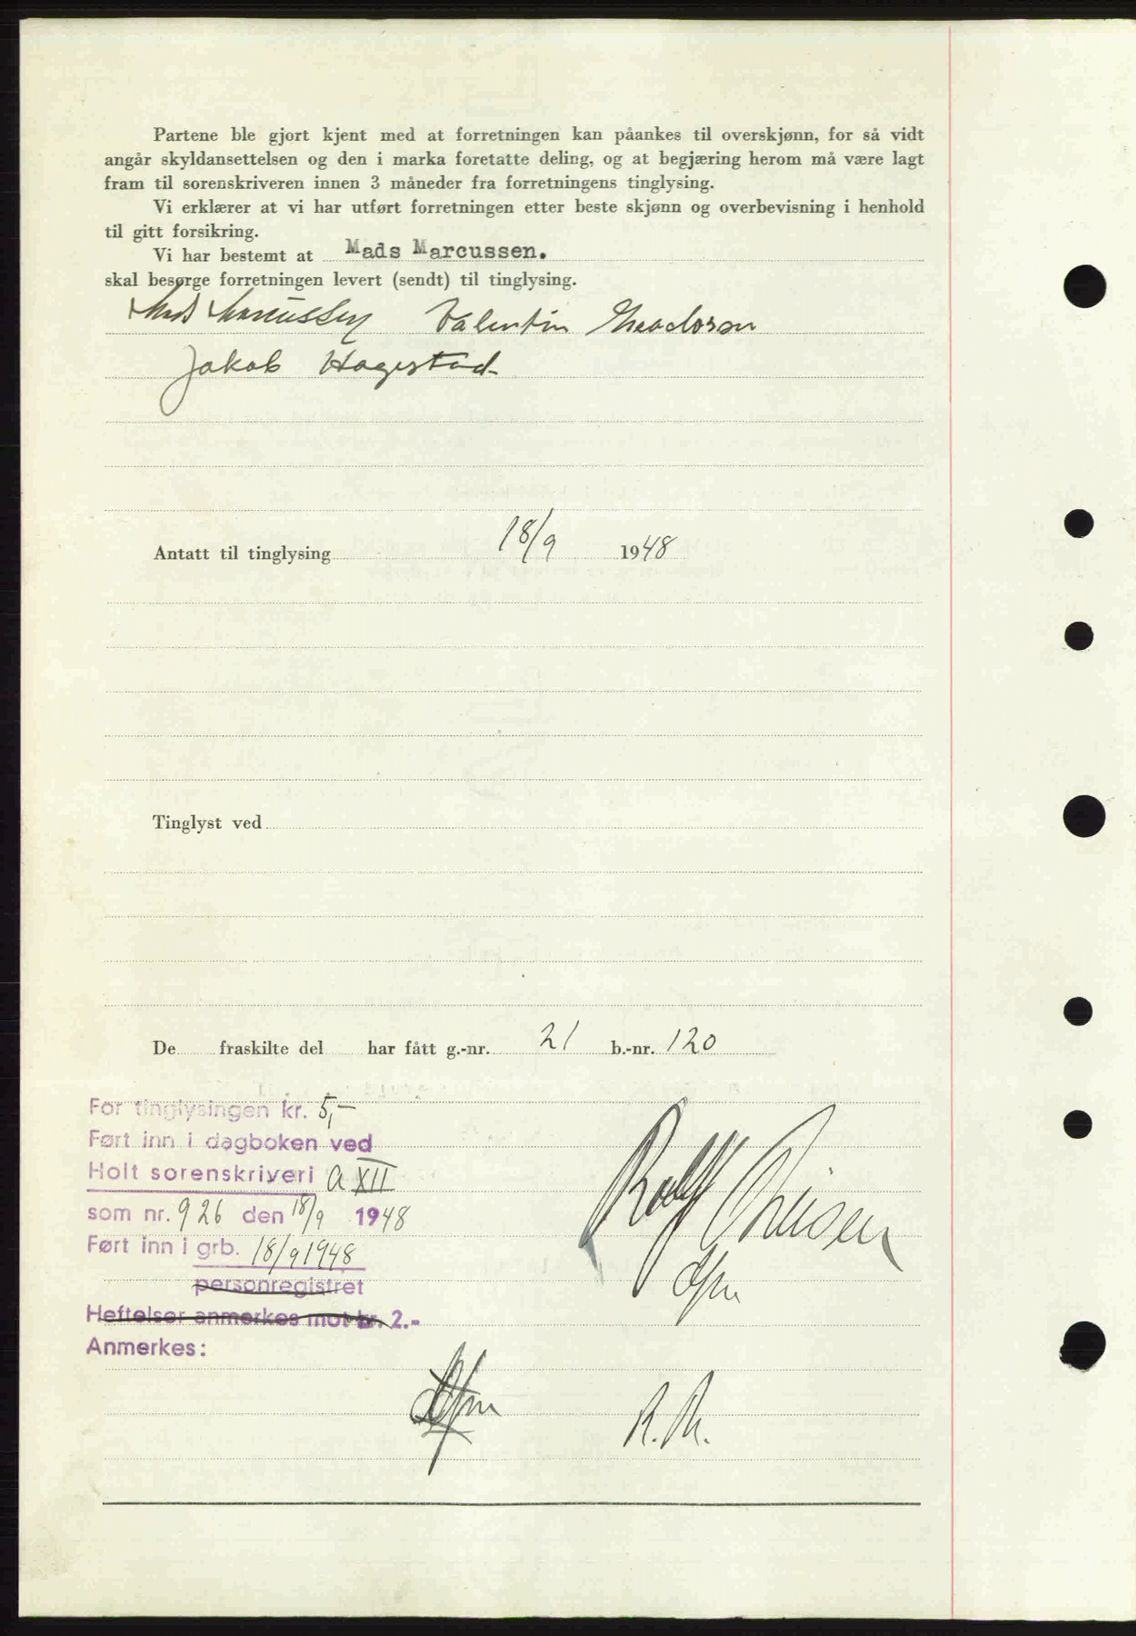 Partene ble gjort kjent med at forretningen kan påankes til overskjønn, for så vidt
angår skyldansettelsen og den i marka foretatte deling, og at begjæring herom må være lagt
fram til sorenskriveren innen 3 måneder fra forretningens tinglysing.
Vi erklærer at vi har utført forretningen etter beste skjønn og overbevisning i henhold
til gitt forsikring.
Vi har bestemt at Mads Marcussen.
skal besørge forretningen levert (sendt) til tinglysing.
Mads Marcussen Valentin
Jakob Hagestad
Antatt til tinglysing 18/9 1948
Tinglyst ved
De fraskilte del har fått g.-nr. 21 b.-nr. 120
For tinglysingen kr. 5,-
Ført inn i dagboken ved
Holt sorenskriveri a XII
som nr. 926 den 18/9 1948
Ført inn i grb. 18/9 1948
personregistret
Heftelser anmerkes mot kr. 2.-
Anmerkes:
Rolf
R. Th.